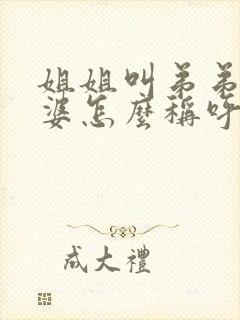 姐姐叫弟弟
婆怎麼稱呼
成大禮